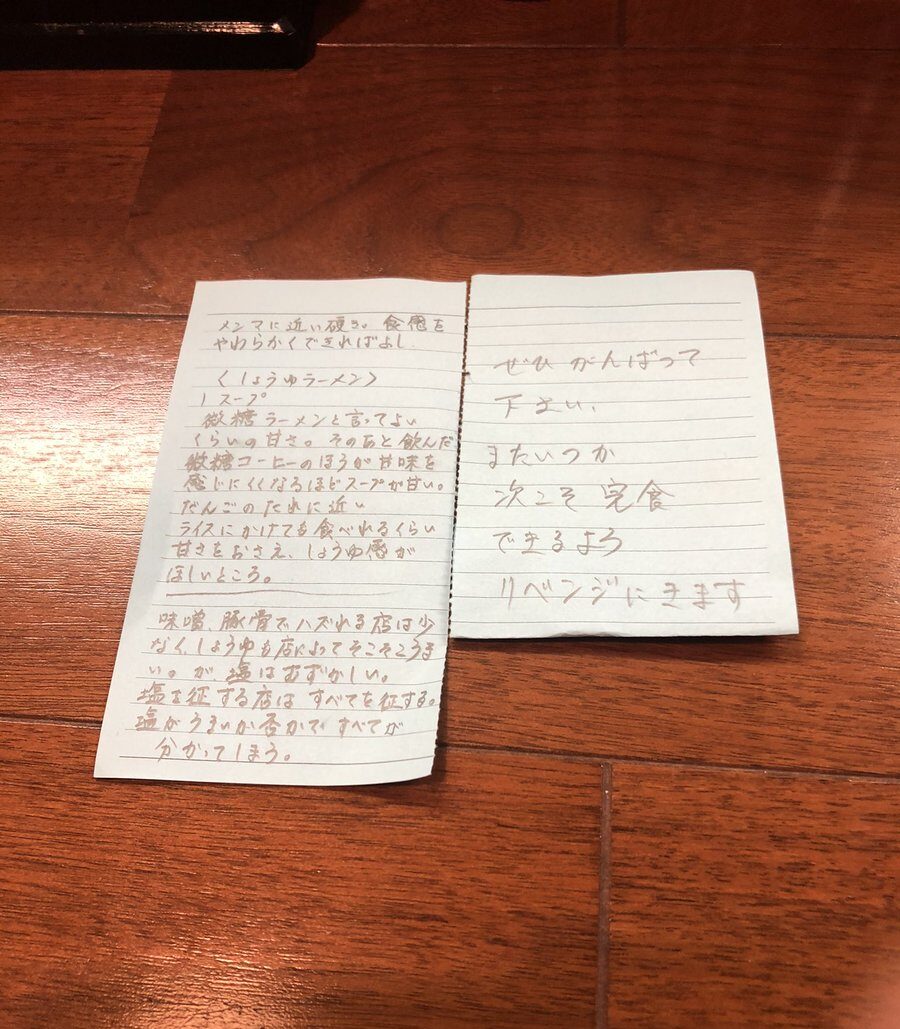 メンマに近い硬さ。食感を
やわらかくできればよし
〈しょうゆラーメン〉
1 スープ
微糖ラーメンと言ってよい
くらいの甘さ。そのあと飲んだ
微糖コーヒーのほうが甘味を
感じにくくなるほどスープが甘い。
だんごのたれに近い
ライスにかけても食べれるくらい
甘さをおさえ、しょうゆ感が
ほしいところ。
味噌、豚骨でハズれる店は少
なく、しょうゆも店によってそこそこうま
い。が、塩はむずかしい。
塩を征する店はすべてを征する。
塩がうまいか否かですべてが
分かってしまう。
ぜひがんばって
下さい、
またいつか
次こそ完食
できるよう
リベンジにきます